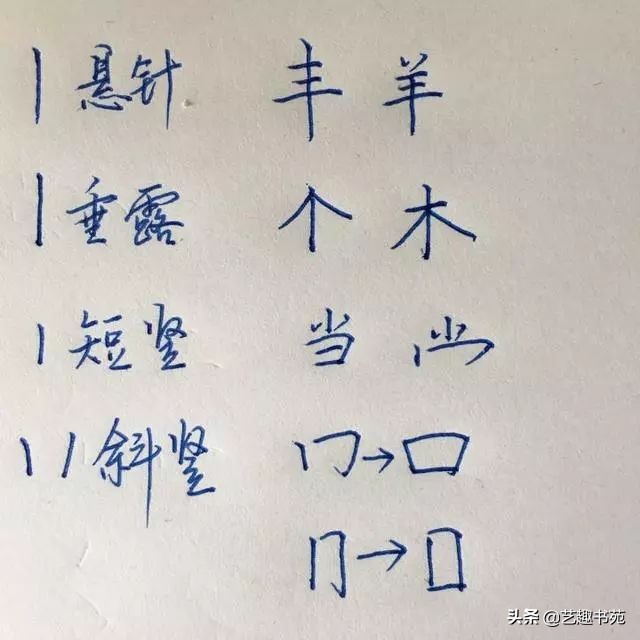 丨 悬针 丰 羊
丨 垂露 个 木
丨 短竖 当
丨丨 斜竖 → 口
→
头条 @艺趣书苑